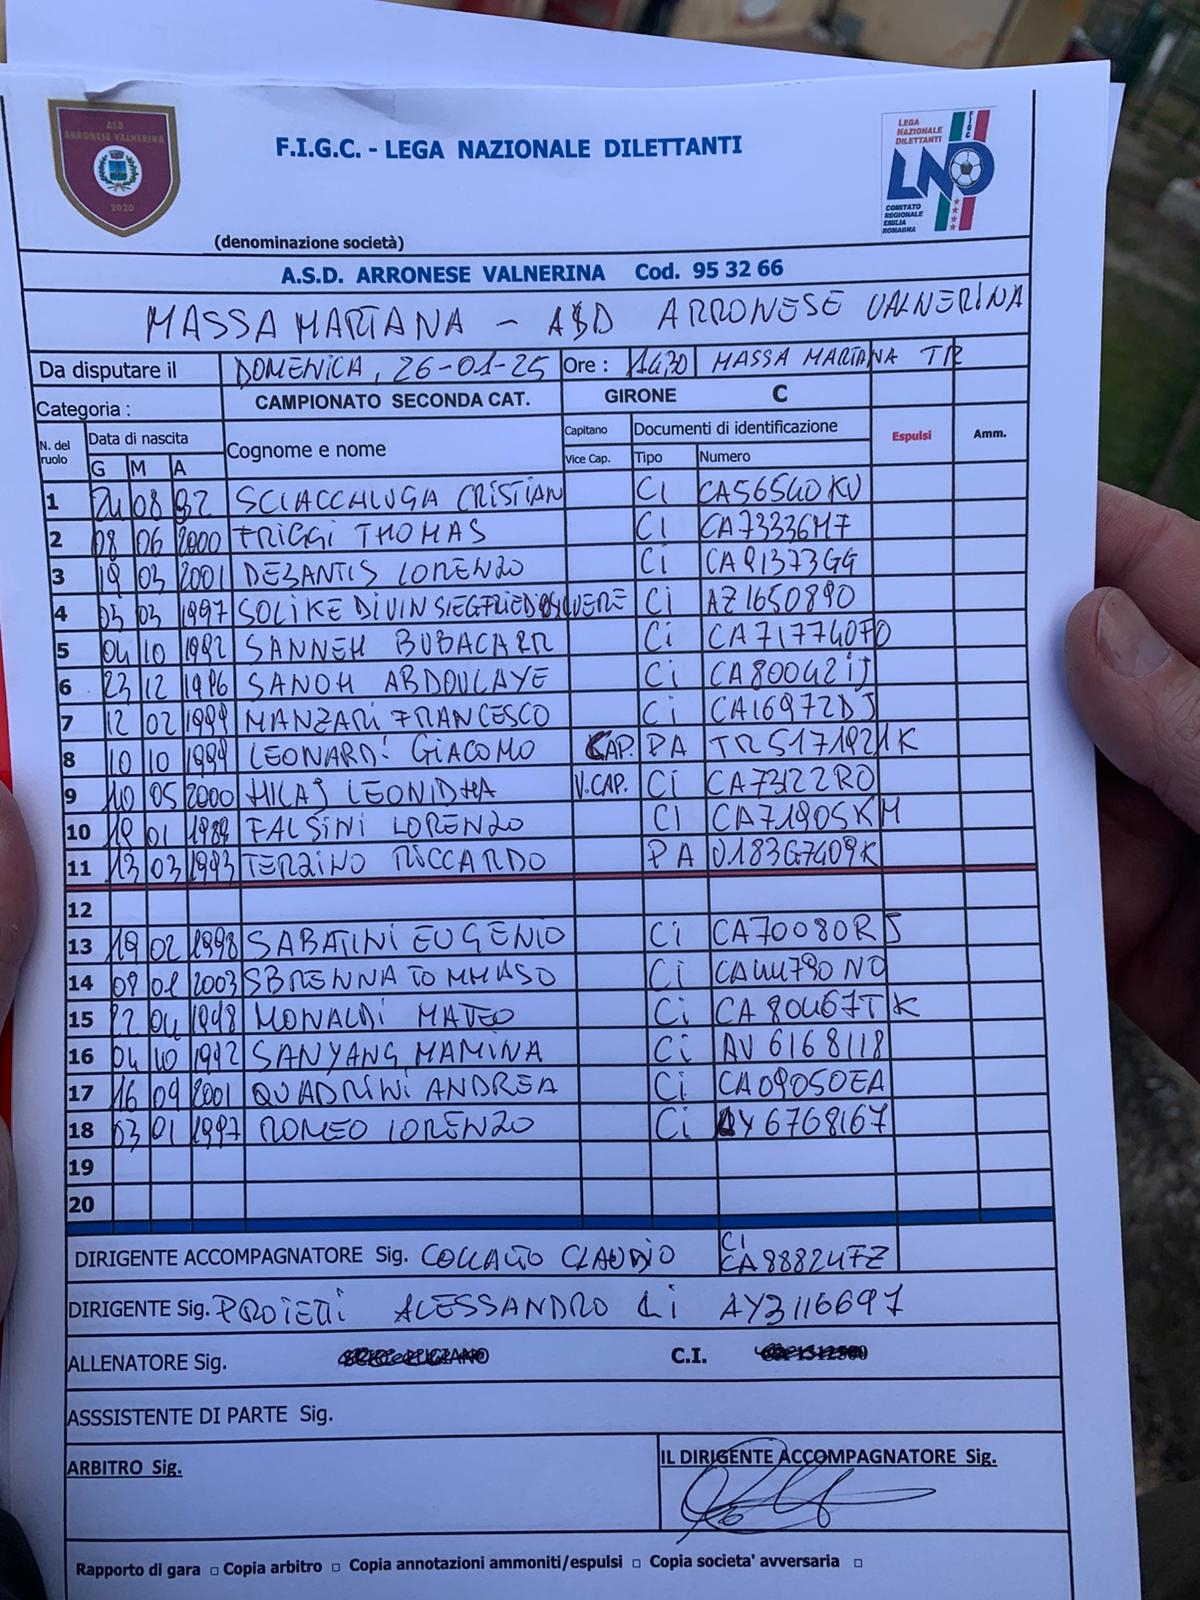 ASD
ARRONESE VALNERINA
2020
F.I.G.C. - LEGA NAZIONALE DILETTANTI
LEGA
NAZIONALE
DILETTANTI
FIGC
LND
COMITATO
REGIONALE
EMILIA
ROMAGNA
(denominazione società)
A.S.D. ARRONESE VALNERINA Cod. 95 32 66
MASSA MARTANA - ASD ARRONESE VALNERINA
Da disputare il DOMENICA, 26-01-25 Ore : 14,30 MASSA MARTANA TR
Categoria : CAMPIONATO SECONDA CAT. GIRONE C
N. del ruolo Data di nascita G M A Cognome e nome Capitano Vice Cap. Documenti di identificazione Tipo Numero Espulsi Amm.
1 08 92 SCIACCALUGA CRISTIAN CI CA56540KV
2 08 06 2000 FRIGGI THOMAS CI CA73336M7
3 19 03 2001 DESANTIS LORENZO Ci CA91373GG
4 03 1997 SOLIKE DIVIN SIEGFRIED Ci AZ1650890
5 04 10 1992 SANNEH BUBACARR Ci CA71774OFO
6 23 12 1996 SANOH ABDOULAYE Ci CA80042IJ
7 12 02 1999 MANZARI FRANCESCO Ci CA16972DJ
8 10 10 1999 LEONARDI GIACOMO CAP. PA TR5171921K
9 10 05 2000 HILAJ LEONIDHA V.CAP. Ci CA73122RO
10 19 01 1989 FALSINI LORENZO CI CA71905KM
11 13 03 1993 TERZINO RICCARDO PA U183G7409K
12
13 19 02 1998 SABATINI EUGENIO Ci CA70080RJ
14 2003 SBRENNA TOMMASO Ci
15 04 1998 MONALDI MATEO Ci CA80467TK
16 04 10 1992 SANYANG MAMINA Ci AV 6168118
17 16 09 2001 QUADRINI ANDREA Ci CA09050EA
18 03 01 1997 ROMEO LORENZO Ci AY6768167
19
20
DIRIGENTE ACCOMPAGNATORE Sig. COLLAVO CLAUDIO CI CA88824FZ
DIRIGENTE Sig. PROIETTI ALESSANDRO Ci AY3116697
ALLENATORE Sig. C.I.
ASSSISTENTE DI PARTE Sig.
ARBITRO Sig. IL DIRIGENTE ACCOMPAGNATORE Sig.
Rapporto di gara □ Copia arbitro □ Copia annotazioni ammoniti/espulsi □ Copia societa' avversaria □